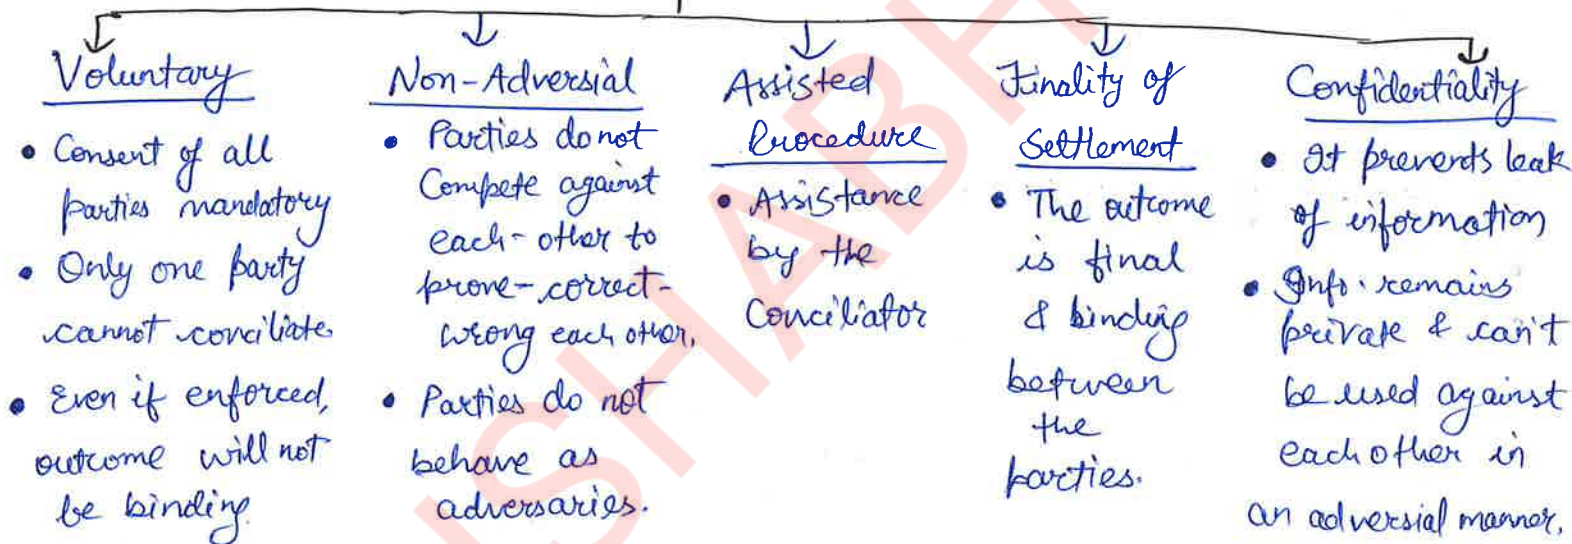 Voluntary
• Consent of all
parties mandatory
• Only one party
cannot conciliate
• Even if enforced,
outcome will not
be binding.
Non-Adversial
• Parties do not
Compete against
each-other to
prove-correct-
wrong each other,
• Parties do not
behave as
adversaries.
Assisted
Procedure
• Assistance
by the
Conciliator
Finality of
Settlement
• The outcome
is final
& binding
between
the
parties.
Confidentiality
• It prevents leak
of information
• Info. remains
private & can't
be used against
each other in
an adversial manner.
ISHABH